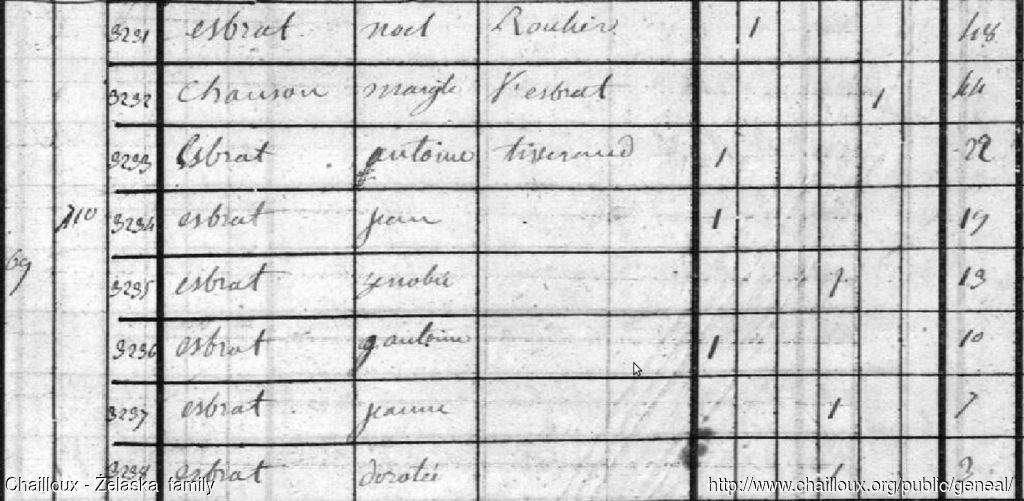 3231 esbrat noel Roulier 1 48
3232 Chauson margte Ve esbrat 1 44
3233 Esbrat antoine tisserand 1 22
110 3234 esbrat jean 1 19
69
3235 esbrat zenobie 1 13
3236 esbrat antoine 1 10
3237 esbrat jeanne 1 7
3238 esbrat dorotée 1
Chailloux - Żelaska family http://www.chailloux.org/public/geneal/